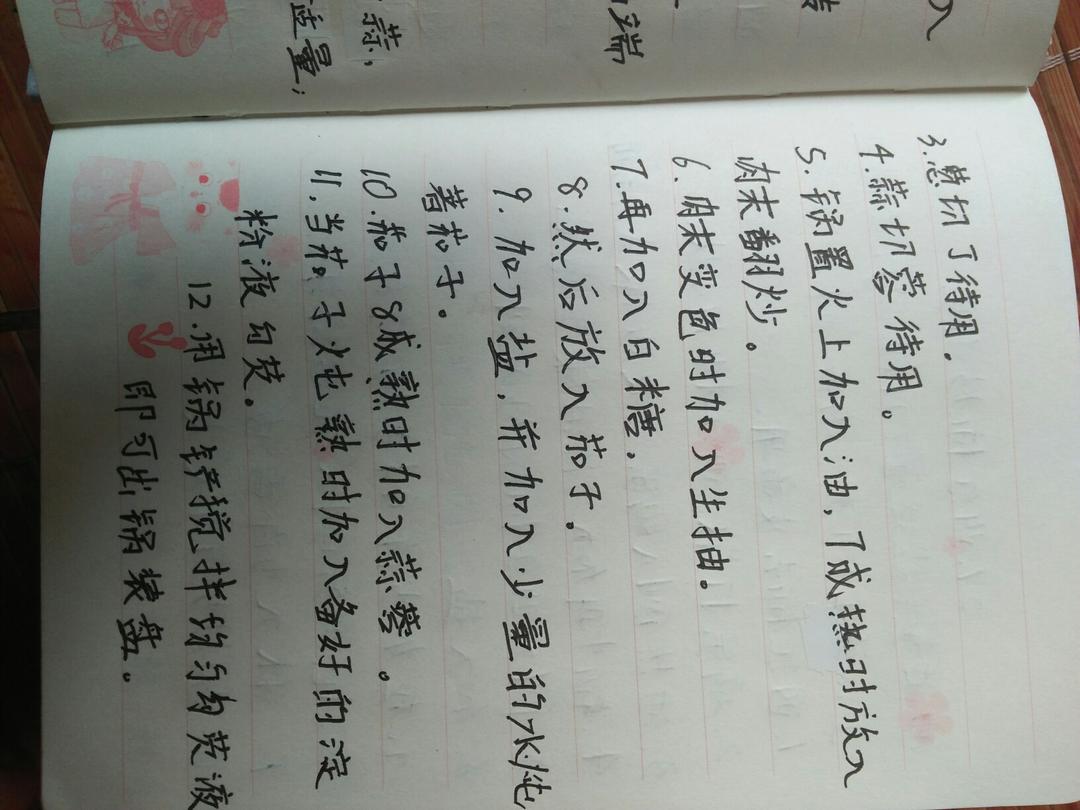 入
端
蒜,
适量;
3.葱切丁待用。
4.蒜切蓉待用。
5.锅置火上加入油,7成热时放入
肉末翻炒。
6.肉末变色时加入生抽。
7.再加入白糖.
8.然后放入茄子。
9.加入盐,并加入少量的水炖
著茄子。
10.茄子8成熟时加入蒜蓉。
11.当茄子炖熟时加入备好的淀
粉液勾芡。
12.用锅铲搅拌均匀勾芡液
即可出锅装盘。